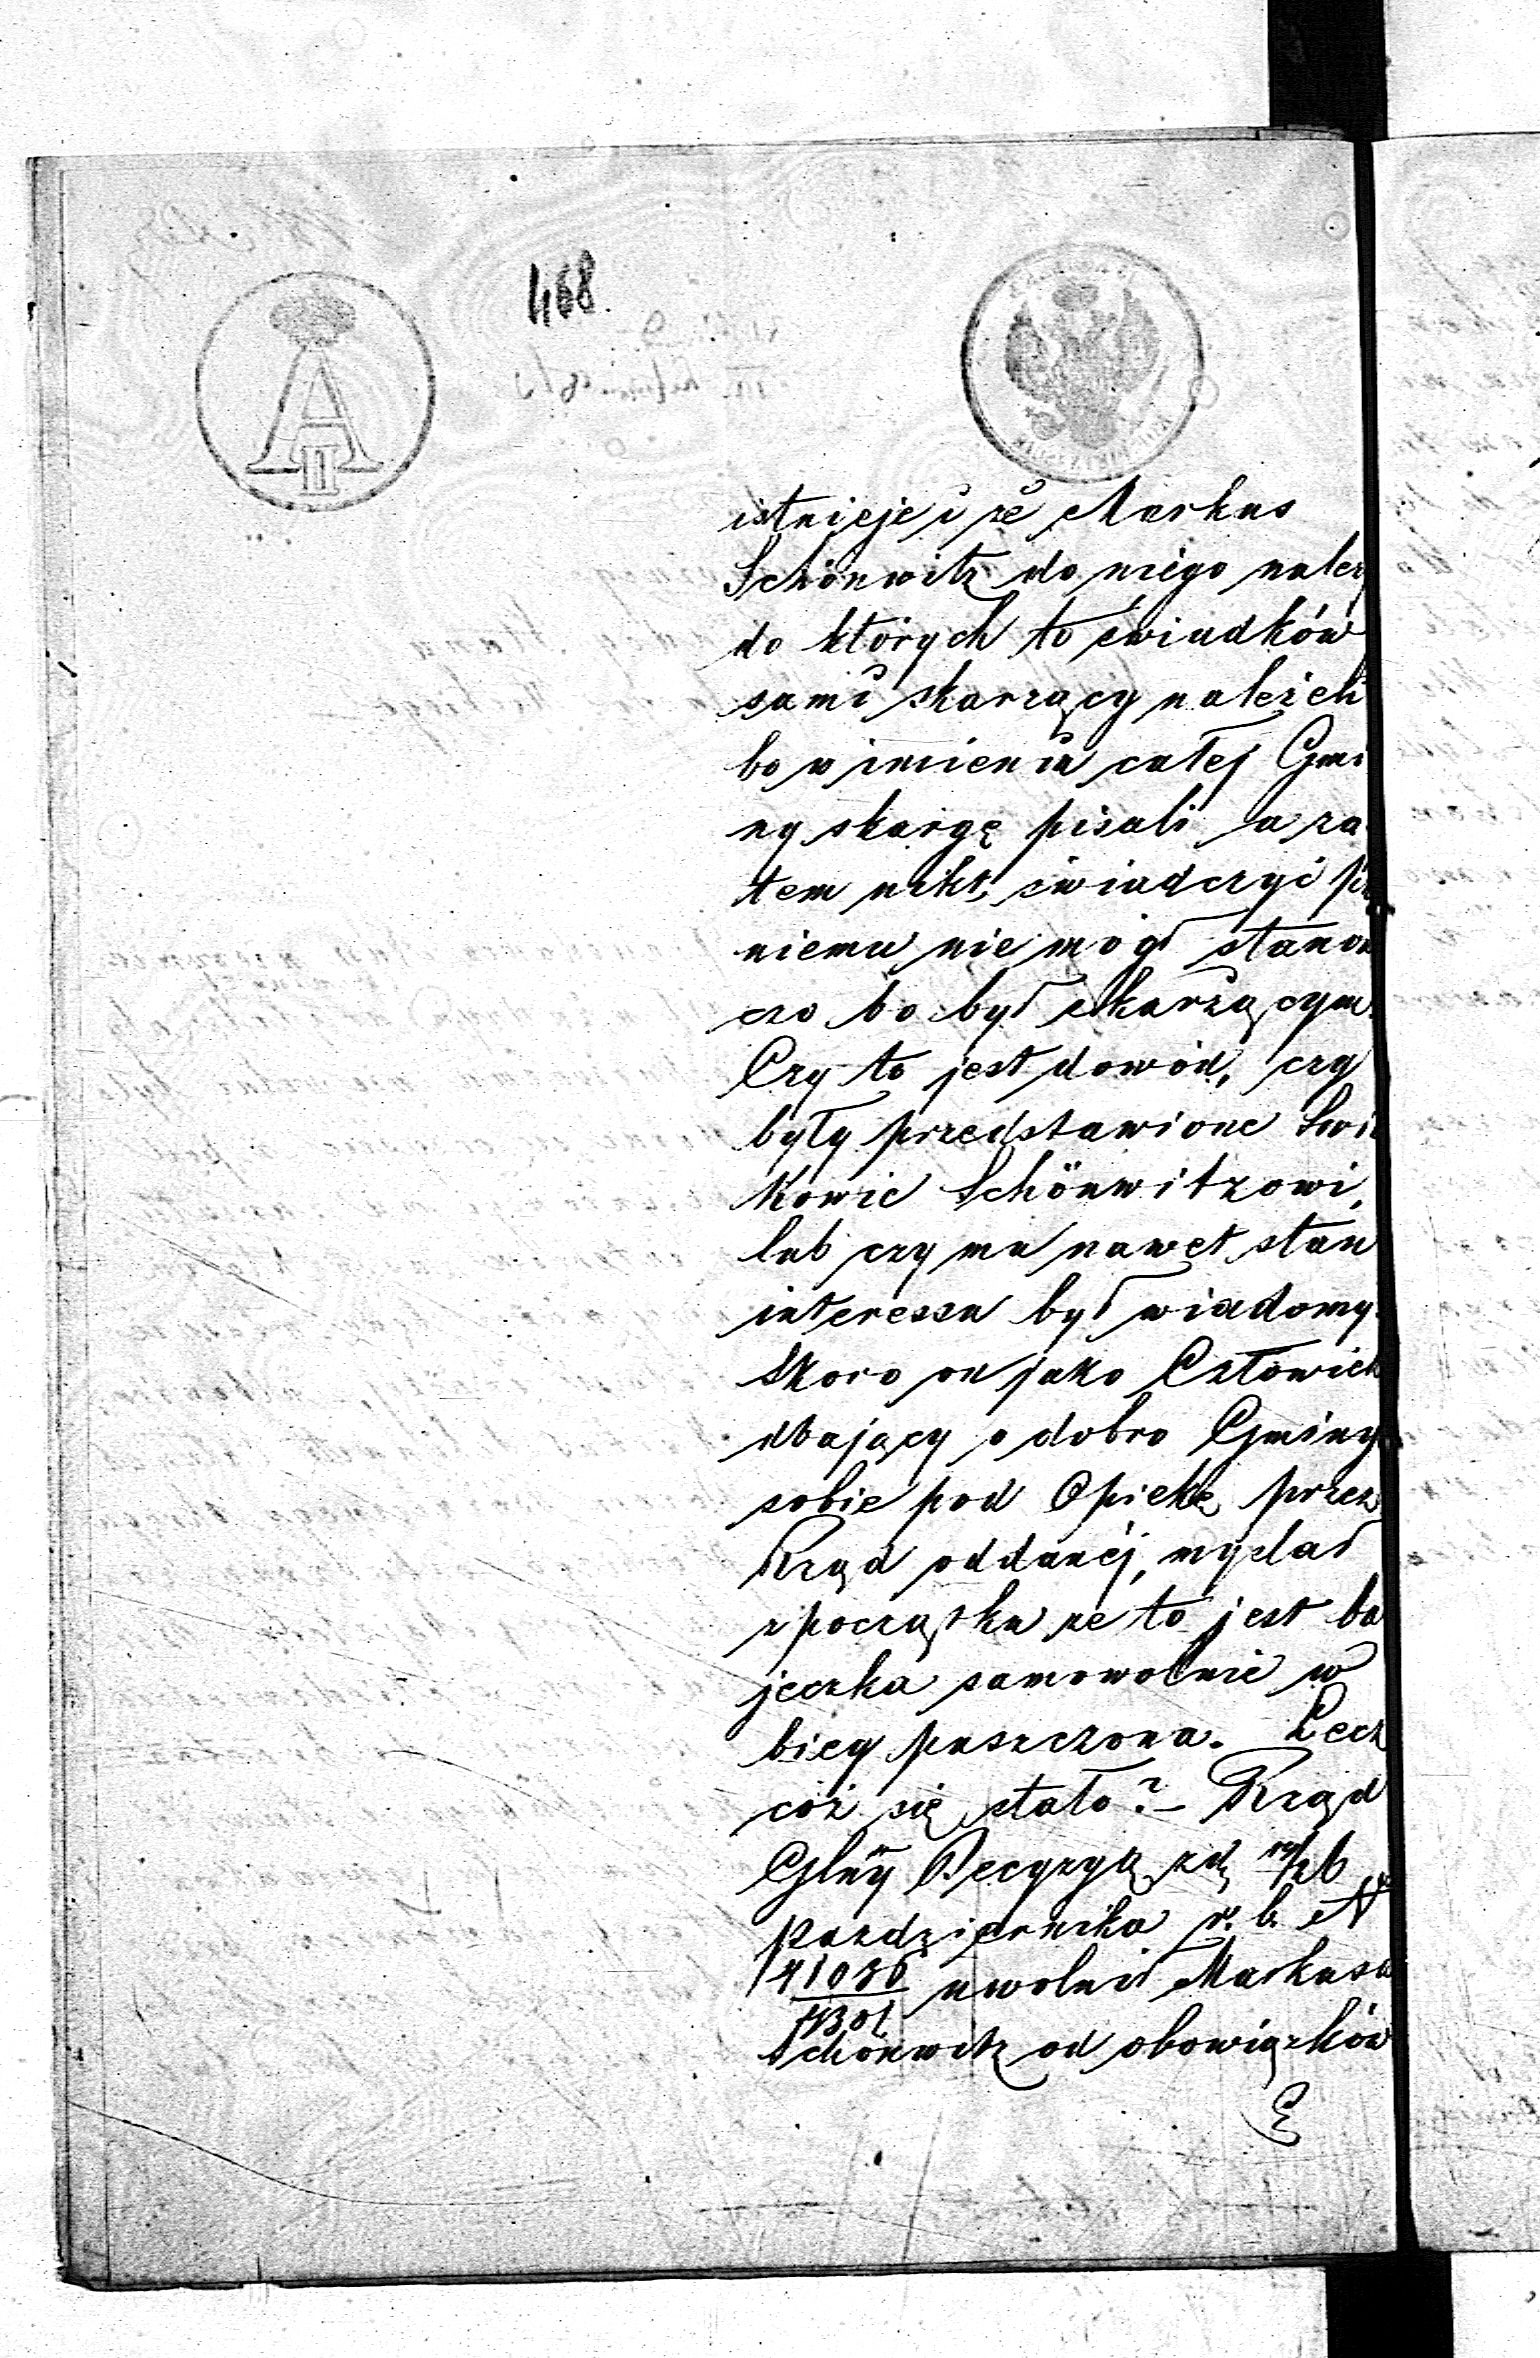 468.
A II
istnieje i że Markus
Schönwitz do niego należ
do których to świadków
sami skarzący należeli
bo w imieniu całej Gmi
ny skargę pisali a za
tem nikt, świadczyć
niemu nie mógł stanow
czo bo był skarżącym.
Czy to jest dowód, czy
były przedstawione Świa
kowie Schönwitzowi,
lub czy mu nawet stan
interessu był wiadomy.
Skoro on jako Człowiek
dbający o dobro Gminy
sobie pod Opiekę przez
Rząd oddanéj, myslał
z początku że to jest ba
jeczka samowolnie w
bieg puszczona. Lecz
coż się stało? – Rząd
Glny Decyzyą zd. 14/26
pazdziernika r. b. N
41036/ uwolnił Markusa
Schönwitz od obowiązków